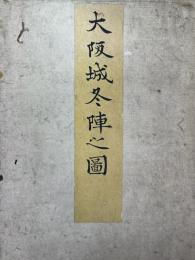 大阪城冬陣之圖
と